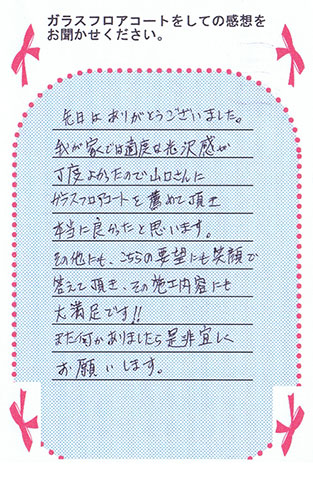 ガラスフロアコートをしての感想を
お聞かせください。
先日はありがとうございました。
我が家では適度な光沢感が
丁度よかったので山口さんに
ガラスフロアコートを薦めて頂き
本当に良かったと思います。
その他にも、こちらの要望にも笑顔で
答えて頂き、その施工内容にも
大満足です!!
また何かありましたら是非宜しく
お願いします。